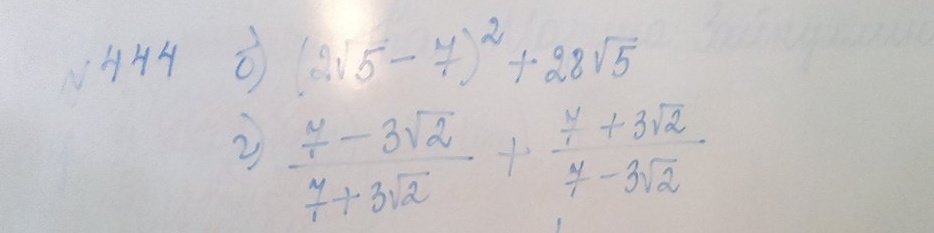 №444 б) (2√5 - 7)² + 28√5
г) (7 - 3√2)/(7 + 3√2) + (7 + 3√2)/(7 - 3√2)